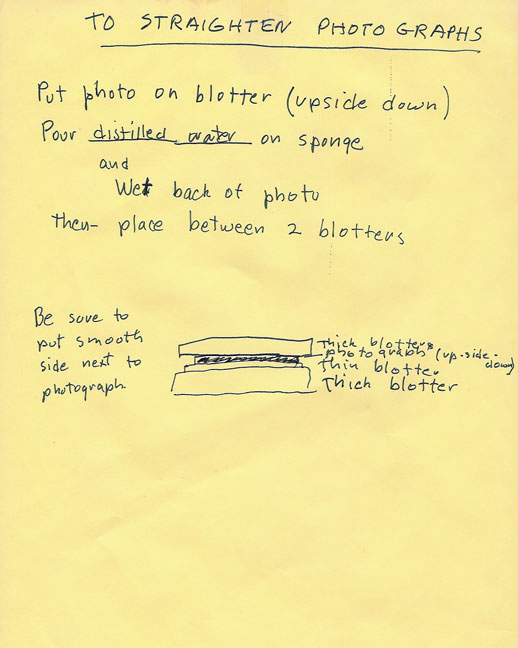 TO STRAIGHTEN PHOTOGRAPHS
Put photo on blotter (upside down)
Pour distilled water on sponge
and
Wet back of photo
then- place between 2 blotters
Be sure to
put smooth
side next to
photograph
Thick blotters
photograph (up-side-down)
Thin blotter
Thick blotter